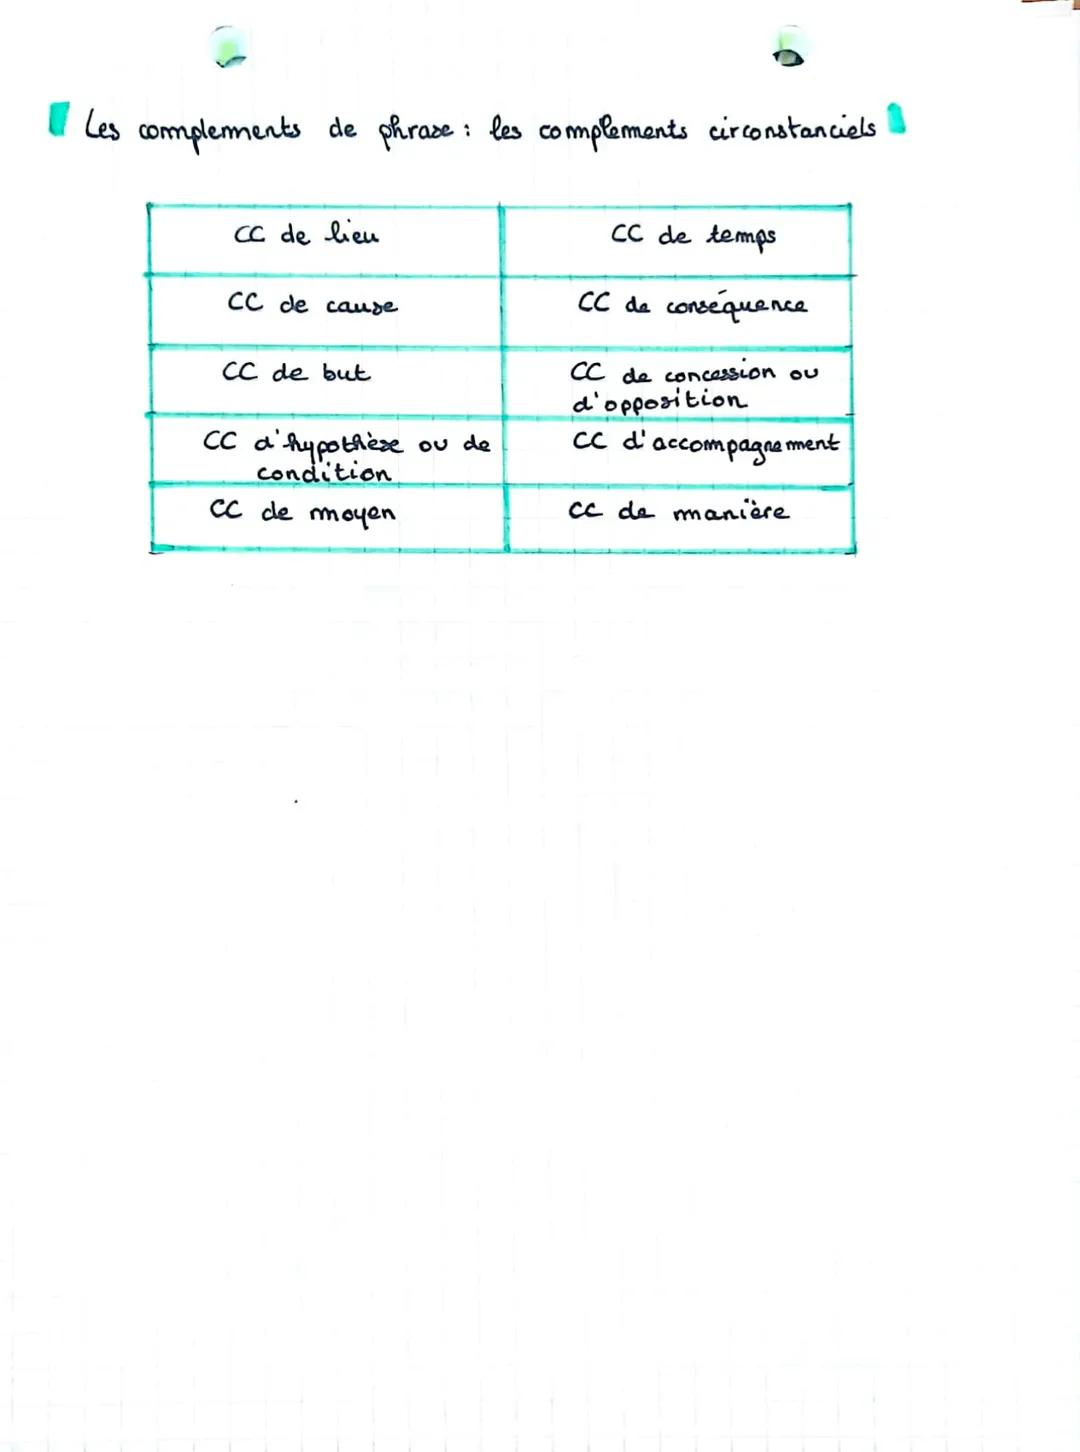 Les complements de phrase : les complements circonstanciels
CC de lieu
CC de temps
CC de cause
CC de conséquence
CC de but
CC de concession ou
d'opposition
CC d'hypothèse ou de
condition
CC d'accompagnement
CC de moyen
CC de manière